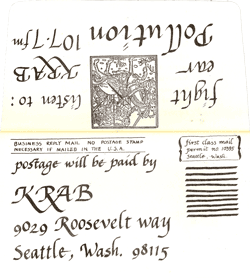 fight
ear
Pollution
listen to:
KRAB
107.7 fm
BUSINESS REPLY MAIL NO POSTAGE STAMP
NECESSARY IF MAILED IN THE U.S.A.
postage will be paid by
KRAB
9029 Roosevelt way
Seattle, Wash. 98115
first class mail
permit no
Seattle, wash.